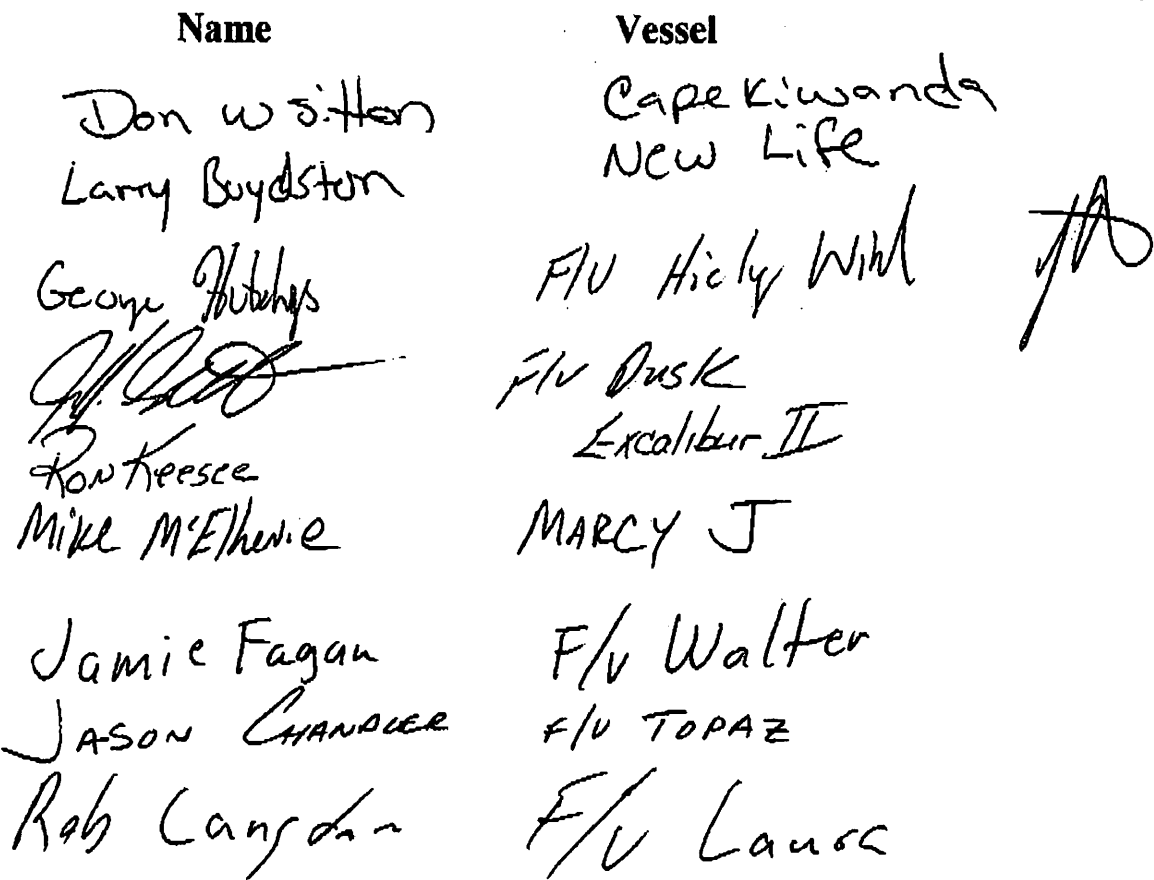 Name Vessel
Don W Sitton Cape Kiwanda
Larry Boydston New Life
George F/V Wind
F/V Dusk
Ron Keesee Excalibur II
Mike MARCY J
Jamie Fagan F/V Walter
JASON CHANDLER F/V TOPAZ
Rob Langdon F/V Laura